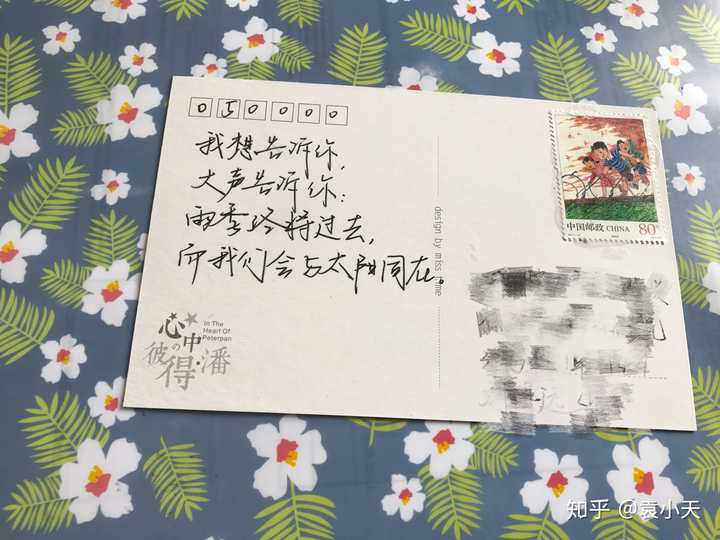 050000
我想告诉你,
大声告诉你:
雨季终将过去,
而我们会与太阳同在。
design by miss time
中国邮政 CHINA 80分
心中の彼得·潘
In The
Heart Of
Peterpan
知乎 @袁小天